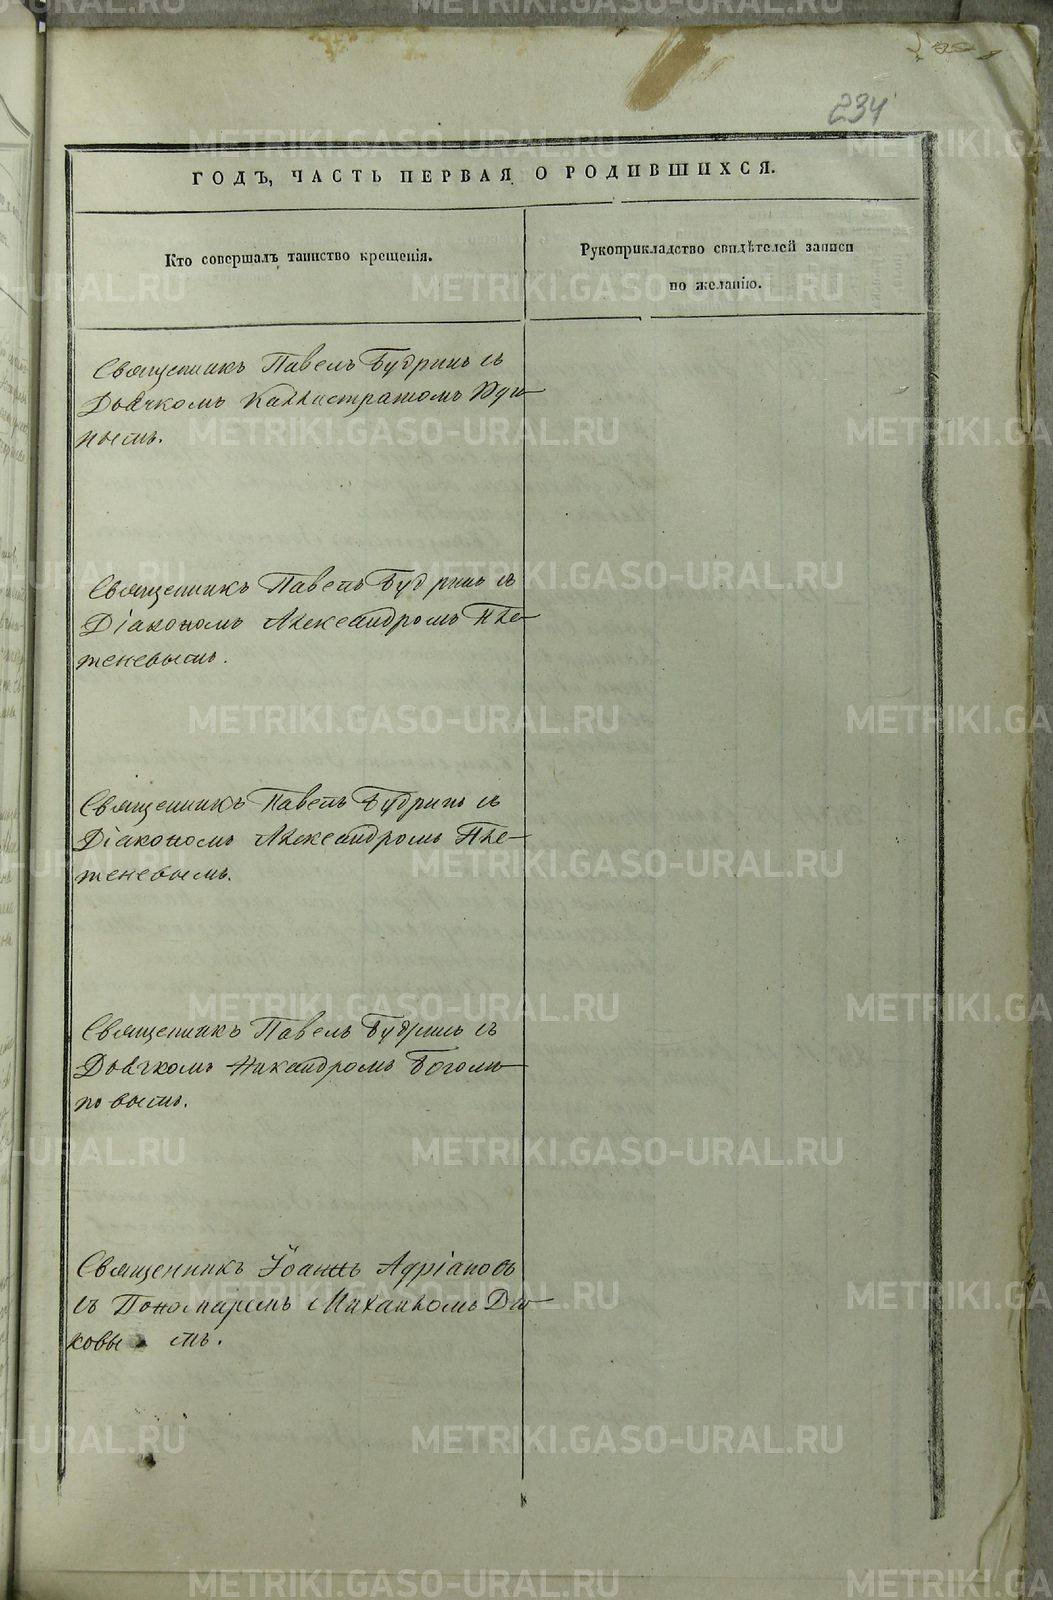 234
ГОДЪ, ЧАСТЬ ПЕРВАЯ О РОДИВШИХСЯ.
Кто совершалъ таинство крещенія.
Рукоприкладство свидѣтелей записи
по желанію.
Священникъ Павелъ Будринъ съ
Дьячкомъ Каллистратомъ Юди-
нымъ.
Священникъ Павелъ Будринъ съ
Діакономъ Александромъ Пле-
теневымъ.
Священникъ Павелъ Будринъ съ
Діакономъ Александромъ Пле-
теневымъ.
Священникъ Павелъ Будринъ съ
Дьячкомъ Никандромъ Боголю-
повымъ.
Священникъ Іоаннъ Адріановъ
съ Пономаремъ Михаиломъ
ковы мъ.
METRIKI.GASO-URAL.RU